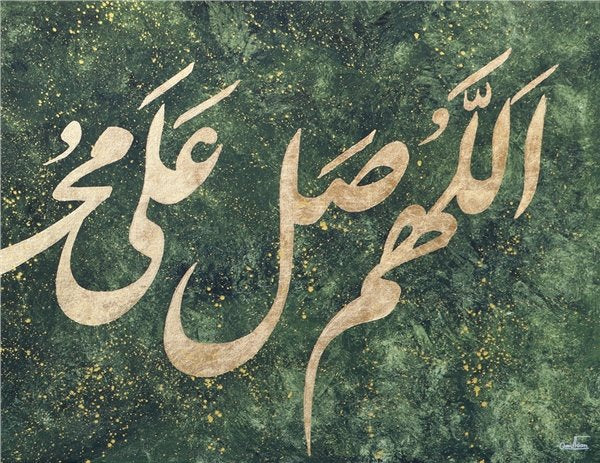 اَللَّهُم صَل عَلَى مُحـ